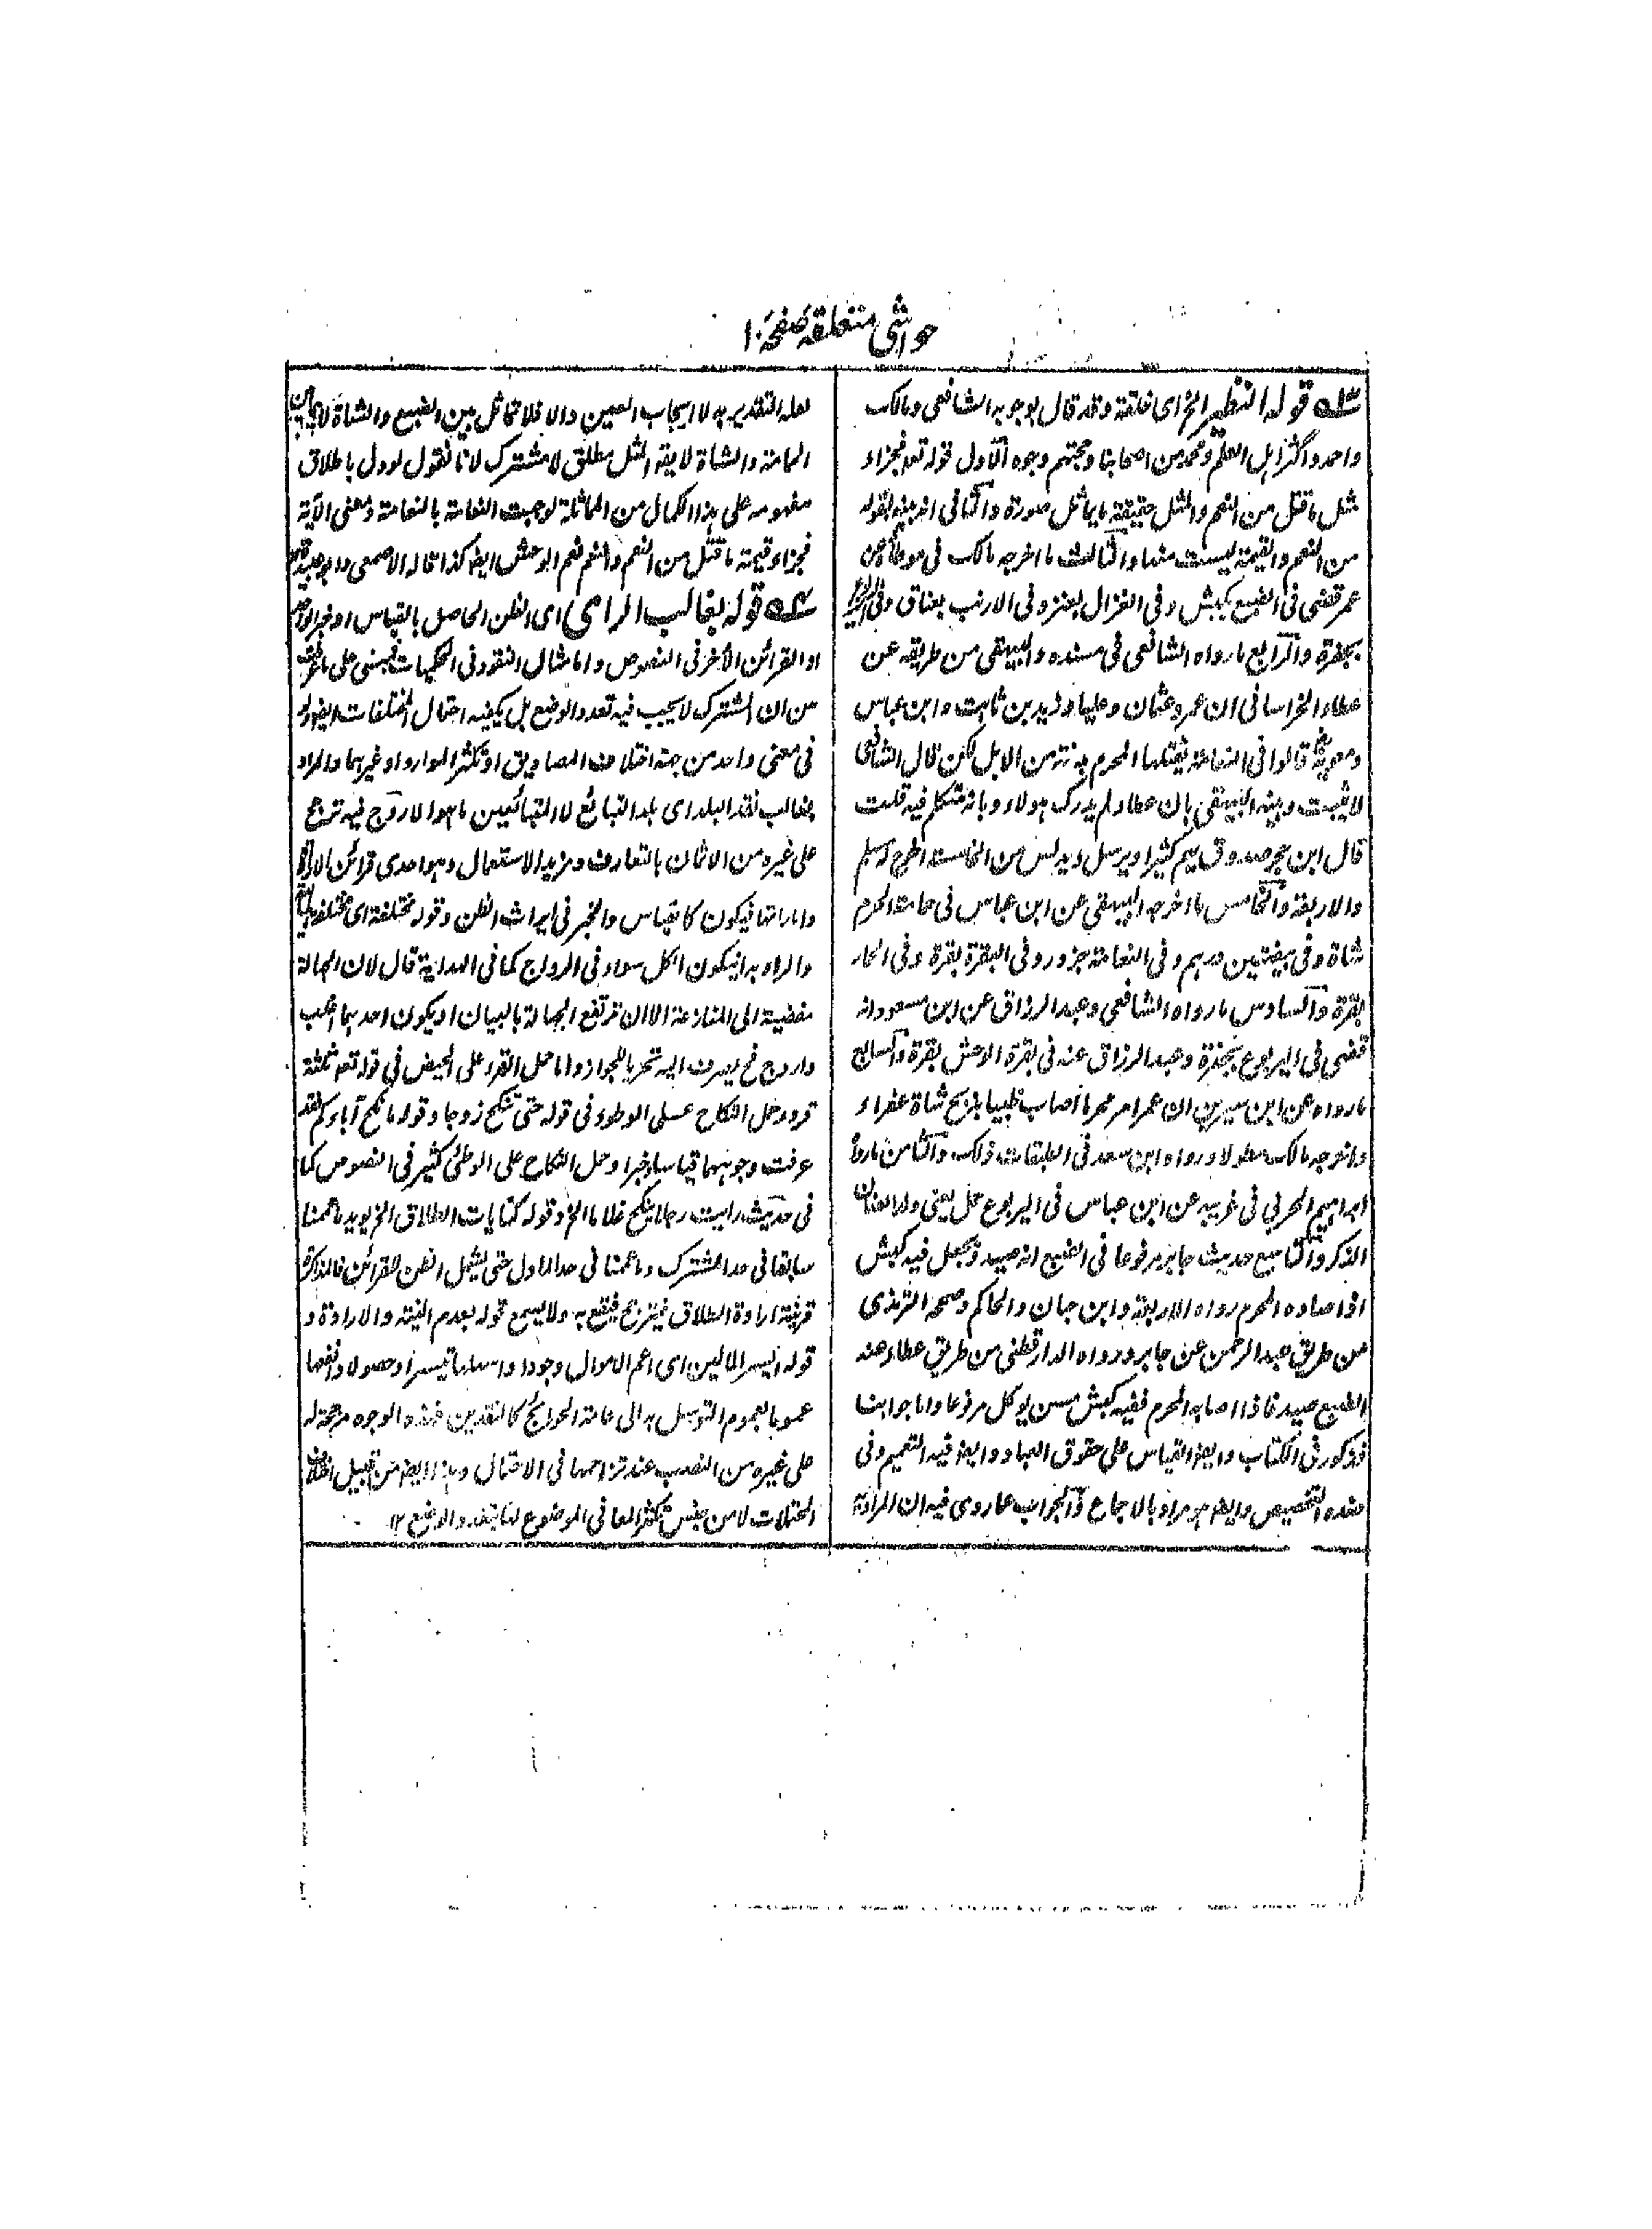 حواشی متعلقہ صفحہ ۱۰
قولہ النظیر الخ ای خلقة وقد قال بوجوبه الشافعی ومالک
واحمد واکثر اہل العلم ومحمد من اصحابنا وحجتهم وجوه الاول قولہ تعہ فجزاء
مثل ما قتل من النعم والمثل حقیقة ما یماثل صورة والثانی انہ بینہ بقولہ
من النعم والقیمة لیست منها والثالث ما اخرجہ مالک فی موطأہ عن
عمر قضی فی الضبع بکبش وفی الغزال بعنز وفی الارنب بعناق وفی الیربوع
بجفرة والرابع ما رواہ الشافعی فی مسندہ والبیہقی من طریقہ عن
عطاء الخراسانی ان عمر وعثمان وعلیا وزید بن ثابت وابن عباس
ومعویة قالوا فی النعامة یقتلها المحرم بدنة من الابل لکن قال الشافعی
لا یثبت وبینہ البیہقی بان عطاء لم یدرک ہولاء وبانہ متکلم فیہ قلت
قال ابن حجر صدوق یہم کثیرا ویرسل ویدلس من الخامسة اخرج لہ مسلم
والاربعة والخامس ما اخرجہ البیہقی عن ابن عباس فی حمامة الحرم
شاة وفی بیضتین درہم وفی النعامة جزور وفی البقرة بقرة وفی الحمار
بقرة والسادس ما رواہ الشافعی وعبد الرزاق عن ابن مسعود انہ
قضی فی الیربوع بجفرة وعبد الرزاق عنہ فی بقرة الوحش بقرة والسابع
ما رواہ عن ابن سیرین ان عمر امر محرما اصاب ظبیا بذبح شاة عفراء
واخرجہ مالک مطولا ورواہ ابن سعد فی الطبقات کذلک والثامن ما رواہ
ابراہیم الحربی فی غریبہ عن ابن عباس فی الیربوع حمل یعنی ولد الضان
الذکر والتاسع حدیث جابر مرفوعا فی الضبع انہ صید ویجعل فیہ کبش
اذا صادہ المحرم رواہ الاربعة وابن حبان والحاکم وصححہ الترمذی
من طریق عبد الرحمن عن جابر ورواہ الدارقطنی من طریق عطاء عنہ
الضبع صید فاذا اصابہ المحرم ففیہ کبش مسن یوکل مرفوعا واما جوابنا
فمذکور فی الکتاب وایضا القیاس علی حقوق العباد وایضا فیہ التعمیم وفی
ضدہ التخصیص وایضا ہو مراد بالاجماع والجواب عما روی فیہ ان المراد بہ
لعلہ التقدیر بہ لا ایجاب العین والا فلا تماثل بین الضبع والشاة لا بین
الحمامة والشاة لا یقہ المثل مطلق لا مشترک لانا نقول لو دل باطلاق
مفہومہ علی ہذا الکمال من المماثلة لوجبت النعامة بالنعامة فمعنی الآیة
فجزاء قیمة ما قتل من النعم والنعم نعم الوحش ایضا کذا قالہ الاصمعی وابو عبیدة
قولہ بغالب الرای ای الظن الحاصل بالقیاس او خبر الواحد
او القرائن الاخر فی النصوص واما مثال النقود فی الحکمیات فمبنی علی ما عرفت
من ان المشترک لا یجب فیہ تعدد الوضع بل یکفیہ احتمال المختلفات
فی معنی واحد من جهة اختلاف المصادیق او تکثر الموارد او غیرہما والمراد
بغالب نقد البلد ای بلد التبایع لا المتبائعین ما ہو الاروج فیہ ترجح
علی غیرہ من الاثمان بالتعارف ومزید الاستعمال وہو احدی قرائن الارادة
واماراتها فیکون کالقیاس والخبر فی ایراث الظن وقولہ مختلفة ای مختلفة المالیة
والمراد بہ انیکون الکل سواء فی الرواج کما فی الہدایة قال لان الجهالة
مفضیة الی المنازعة الا ان ترتفع الجهالة بالبیان او یکون احدہما اغلب
واروج فح یصرف الیہ تحریا للجواز واما حمل القرء علی الحیض فی قولہ تعہ ثلثة
قروء وحمل النکاح علی الوطء فی قولہ حتی تنکح زوجا وقولہ ما نکح آباؤکم فقد
عرفت وجوہہما قیاسا وخبرا وحمل النکاح علی الوطئ کثیر فی النصوص کما
فی حدیث رایت رجلا ینکح غلاما الخ وقولہ کنایات الطلاق الخ یوید ما عممنا
سابقا فی حد المشترک وما عممنا فی حد الماول حتی یشمل الظن للقرائن فالمذاکرة
قرینة ارادة الطلاق فیترجح فیقع بہ ولا یسمع قولہ بعدم النیة والارادة و
قولہ ایسر المالین ای اعم الاموال وجودا واسہلها تیسرا وحصولا وانفعها
عموما لعموم التوسل بہ الی عامة الحوائج کالنقدین فہذہ الوجوہ مرجحة لہ
علی غیرہ من النصب عند تزاحمها فی الاحتمال وہذا ایضا من قبیل
المحتملات لا من جنس تکثر المعانی الموضوع لها بتعدد الوضع ۱۲